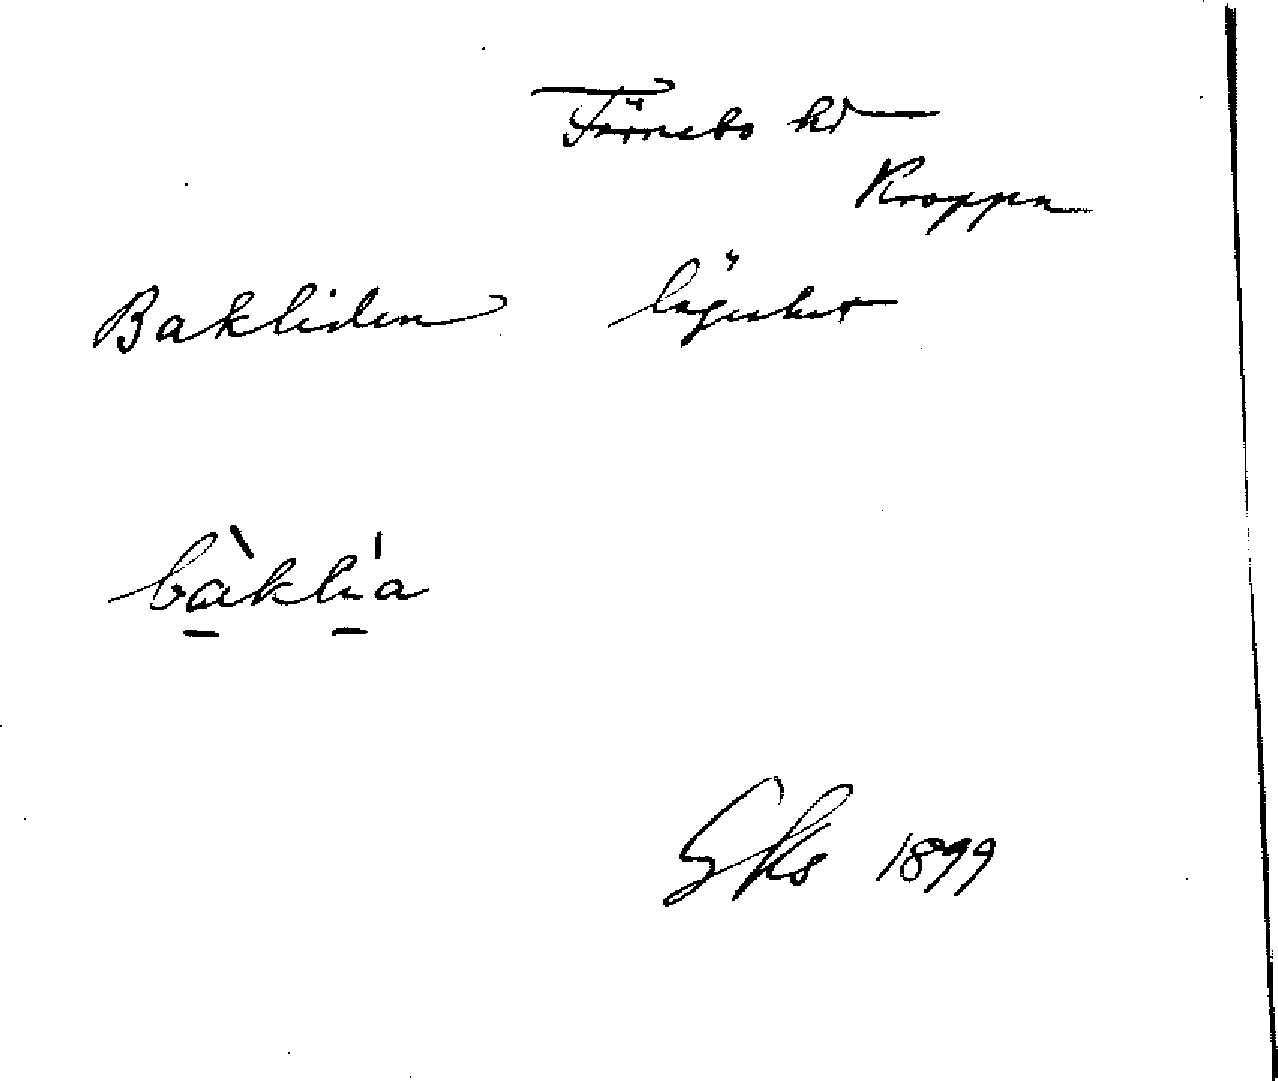 Färnebo hd
Kroppa
Bakliden lägenhet
bàkli'a
1899